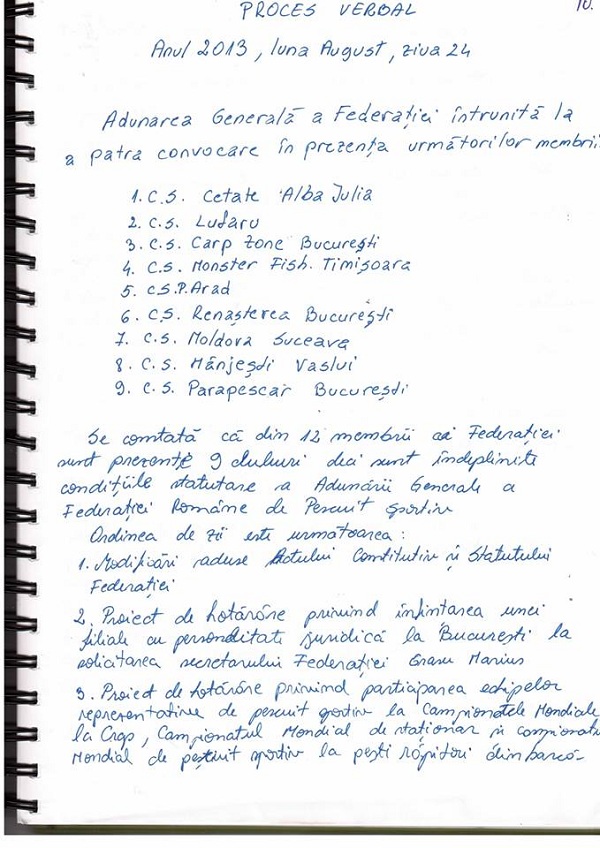 10.
PROCES VERBAL
Anul 2013, luna August, ziua 24
Adunarea Generală a Federației întrunită la
a patra convocare în prezența următorilor membrii:
1. C.S. Cetate Alba Julia
2. C.S. Ludaru
3. C.S. Carp Zone București
4. C.S. Monster Fish. Timișoara
5. C.S.P. Arad
6. C.S. Renașterea București
7. C.S. Moldova Suceava
8. C.S. Mânjești Vaslui
9. C.S. Parapescar București
Se constată că din 12 membrii ai Federației
sunt prezente 9 cluburi deci sunt îndeplinite
condițiile statutare a Adunării Generale a
Federației Române de Pescuit sportiv
Ordinea de zi este următoarea:
1. Modificări aduse Actului Constitutiv și Statutului
Federației
2. Proiect de hotărâre privind înființarea unei
filiale cu personalitate juridică la București la
solicitarea secretarului Federației Grasu Marius
3. Proiect de hotărâre privind participarea echipelor
reprezentative de pescuit sportiv la Campionatele Mondiale
la Crap, Campionatul Mondial de staționar și campionatu
Mondial de pescuit sportiv la pești răpitori din barcă